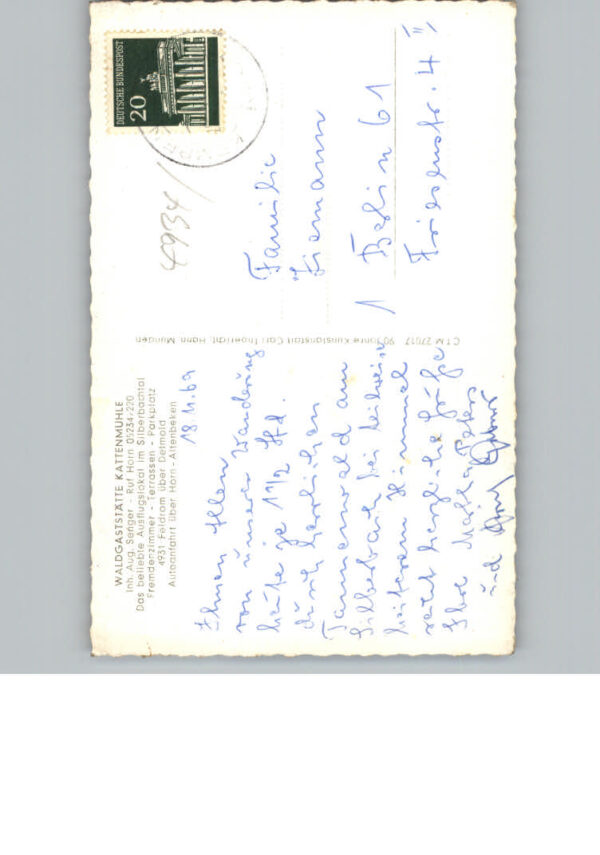 WALDGASTSTÄTTE KATTENMÜHLE
Inh. Aug. Senger - Ruf Horn 05234/220
Das beliebte Ausflugslokal im Silberbachtal
Fremdenzimmer - Terrassen - Parkplatz
4931 Feldrom über Detmold
Autoanfahrt über Horn-Altenbeken
18.11.69
Ihnen Allen
von unserer Wanderung
heute je 1 1/2 Std.
durch herrlichen
Tannenwald am
Silberbach bei teilweise
heiterem Himmel
recht herzliche Grüße
Ihre Martha
und
C.T.M. 27017 90 Jahre Kunstanstalt Carl Thoericht, Hann. Münden
DEUTSCHE BUNDESPOST
20
4934/
Familie
Ziemann
1 Berlin 61
Friesenstr. 4 II